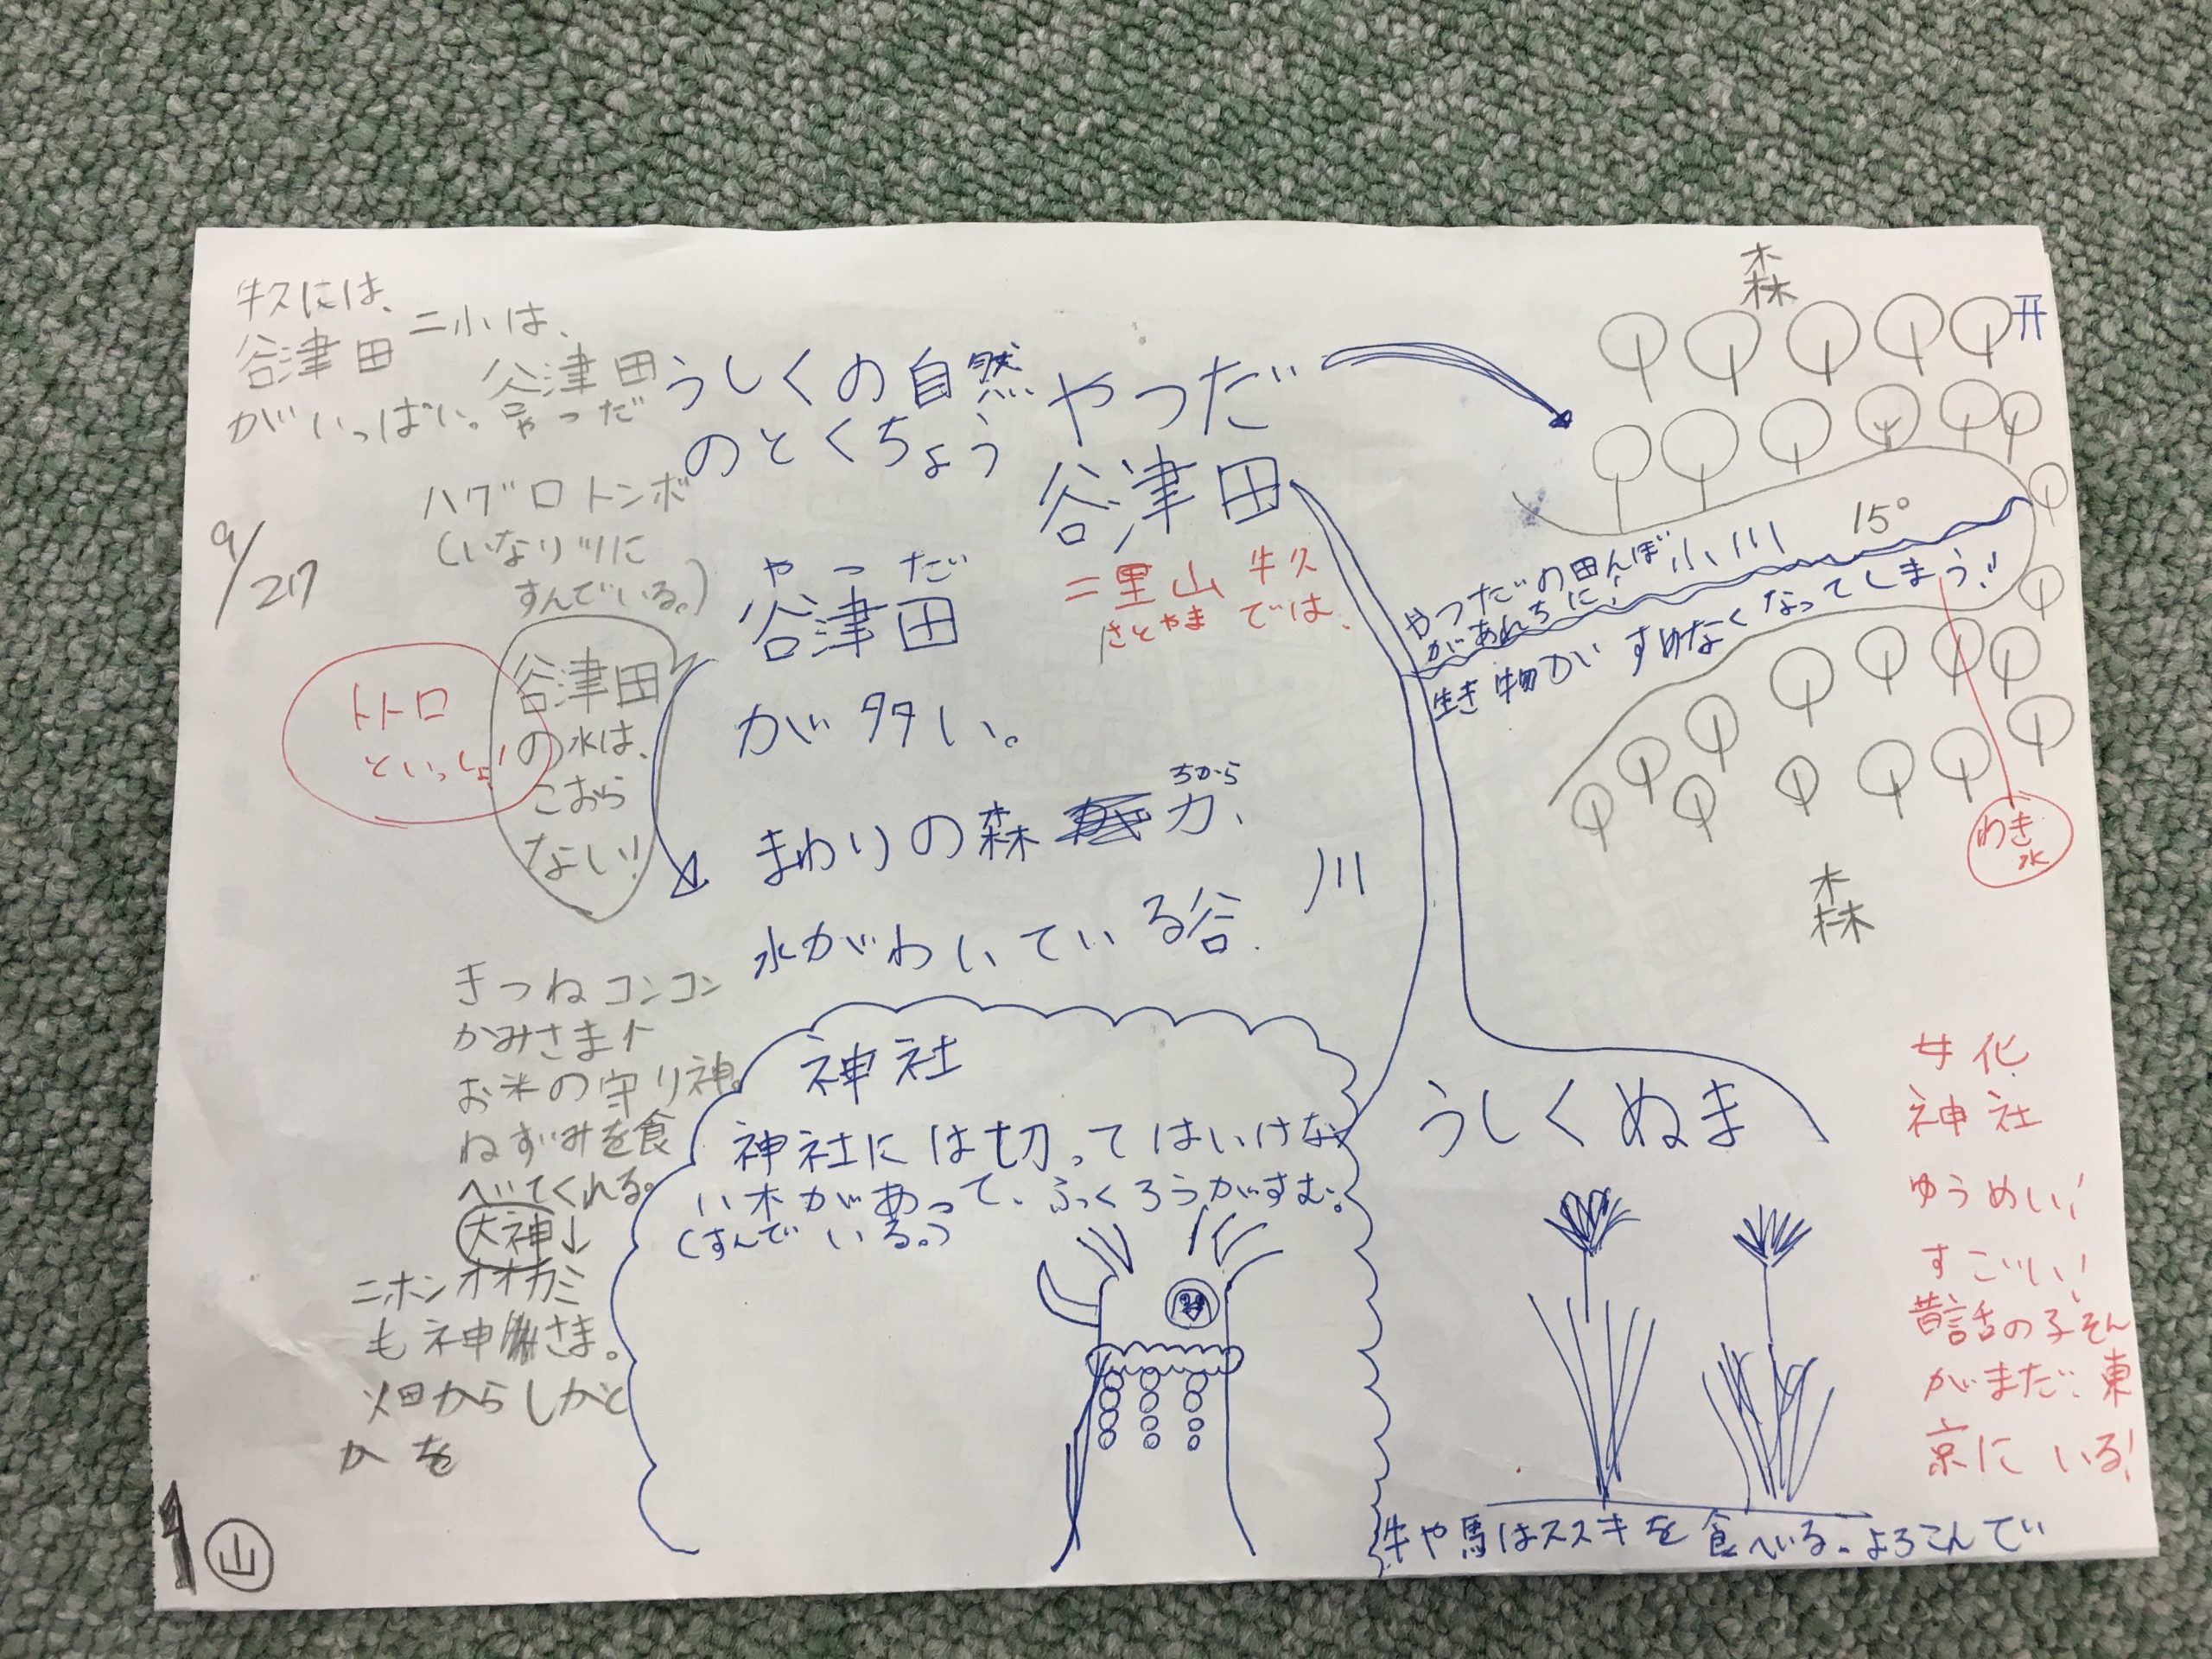 牛久には、
谷津田
がいっぱい。
二小は、
谷津田
やつだ
9/27
ハグロトンボ
(いなり川に
すんでいる。)
トトロ
といっしょ!
谷津田
の水は、
こおら
ない!
うしくの自然
のとくちょう
やつだ
谷津田
=里山
さとやま
牛久
では、
やつだ
谷津田
が多い。
まわりの森
ちから
力、
水がわいている谷.
川
森
小川 15°
やつだの田んぼ
があれちに!
生き物がすめなくなってしまう!!
わき
水
森
きつねコンコン
かみさま↑
お米の守り神。
ねずみを食
べてくれる。
大神↓
ニホンオオカミ
も神さま。
畑からしかと
かを
1
山
神社
神社には切ってはいけな
い木があって、ふくろうがすむ。
(すんでいる。)
うしくぬま
女化
神社
ゆうめい!
すごい!
昔話の子そん
がまだ、東
京にいる!
牛や馬はススキを食べる。よろこんで